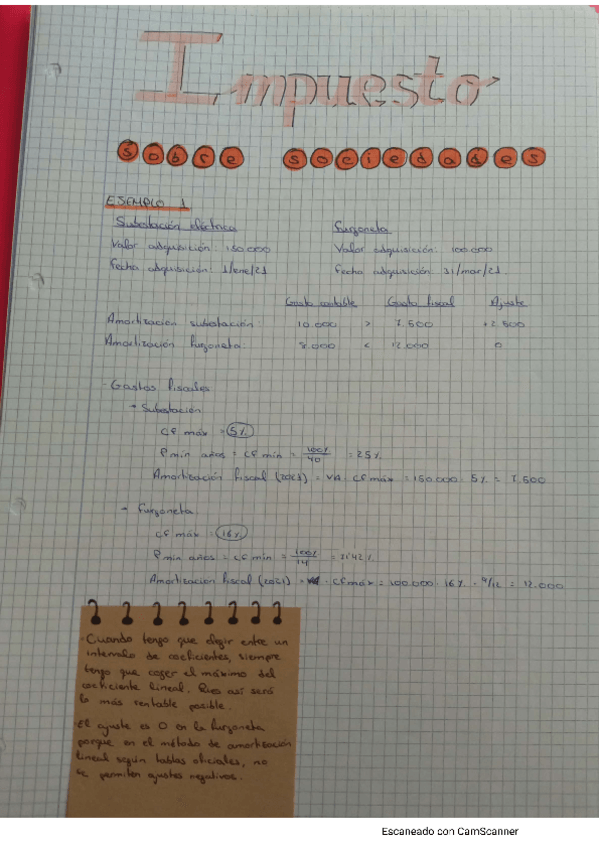 Impuesto
sobre sociedades
EJEMPLO 1
Subestación eléctrica
Valor adquisición: 150.000
Fecha adquisición: 1/ene/21
Furgoneta
Valor adquisición: 100.000
Fecha adquisición: 31/mar/21
Gasto contable Gasto fiscal Ajuste
Amortización subestación: 10.000 > 7.500 +2.500
Amortización furgoneta: 8.000 < 12.000 0
- Gastos fiscales
→ Subestación
CF máx = 5%
Pmin años = CF min = 100%/40 = 25%
Amortización fiscal (2021) = VA · CF máx = 150.000 · 5% = 7.500
→ Furgoneta
CF máx = 16%
Pmin años = CF min = 100%/14 = 7'142%
Amortización fiscal (2021) = · CF máx = 100.000 · 16% · 9/12 = 12.000
· Cuando tengo que elegir entre un
intervalo de coeficientes, siempre
tengo que coger el máximo del
coeficiente lineal. así será
lo más rentable posible.
· El ajuste es 0 en la furgoneta
porque en el método de amortización
lineal según tablas oficiales, no
se permiten ajustes negativos.
Escaneado con CamScanner